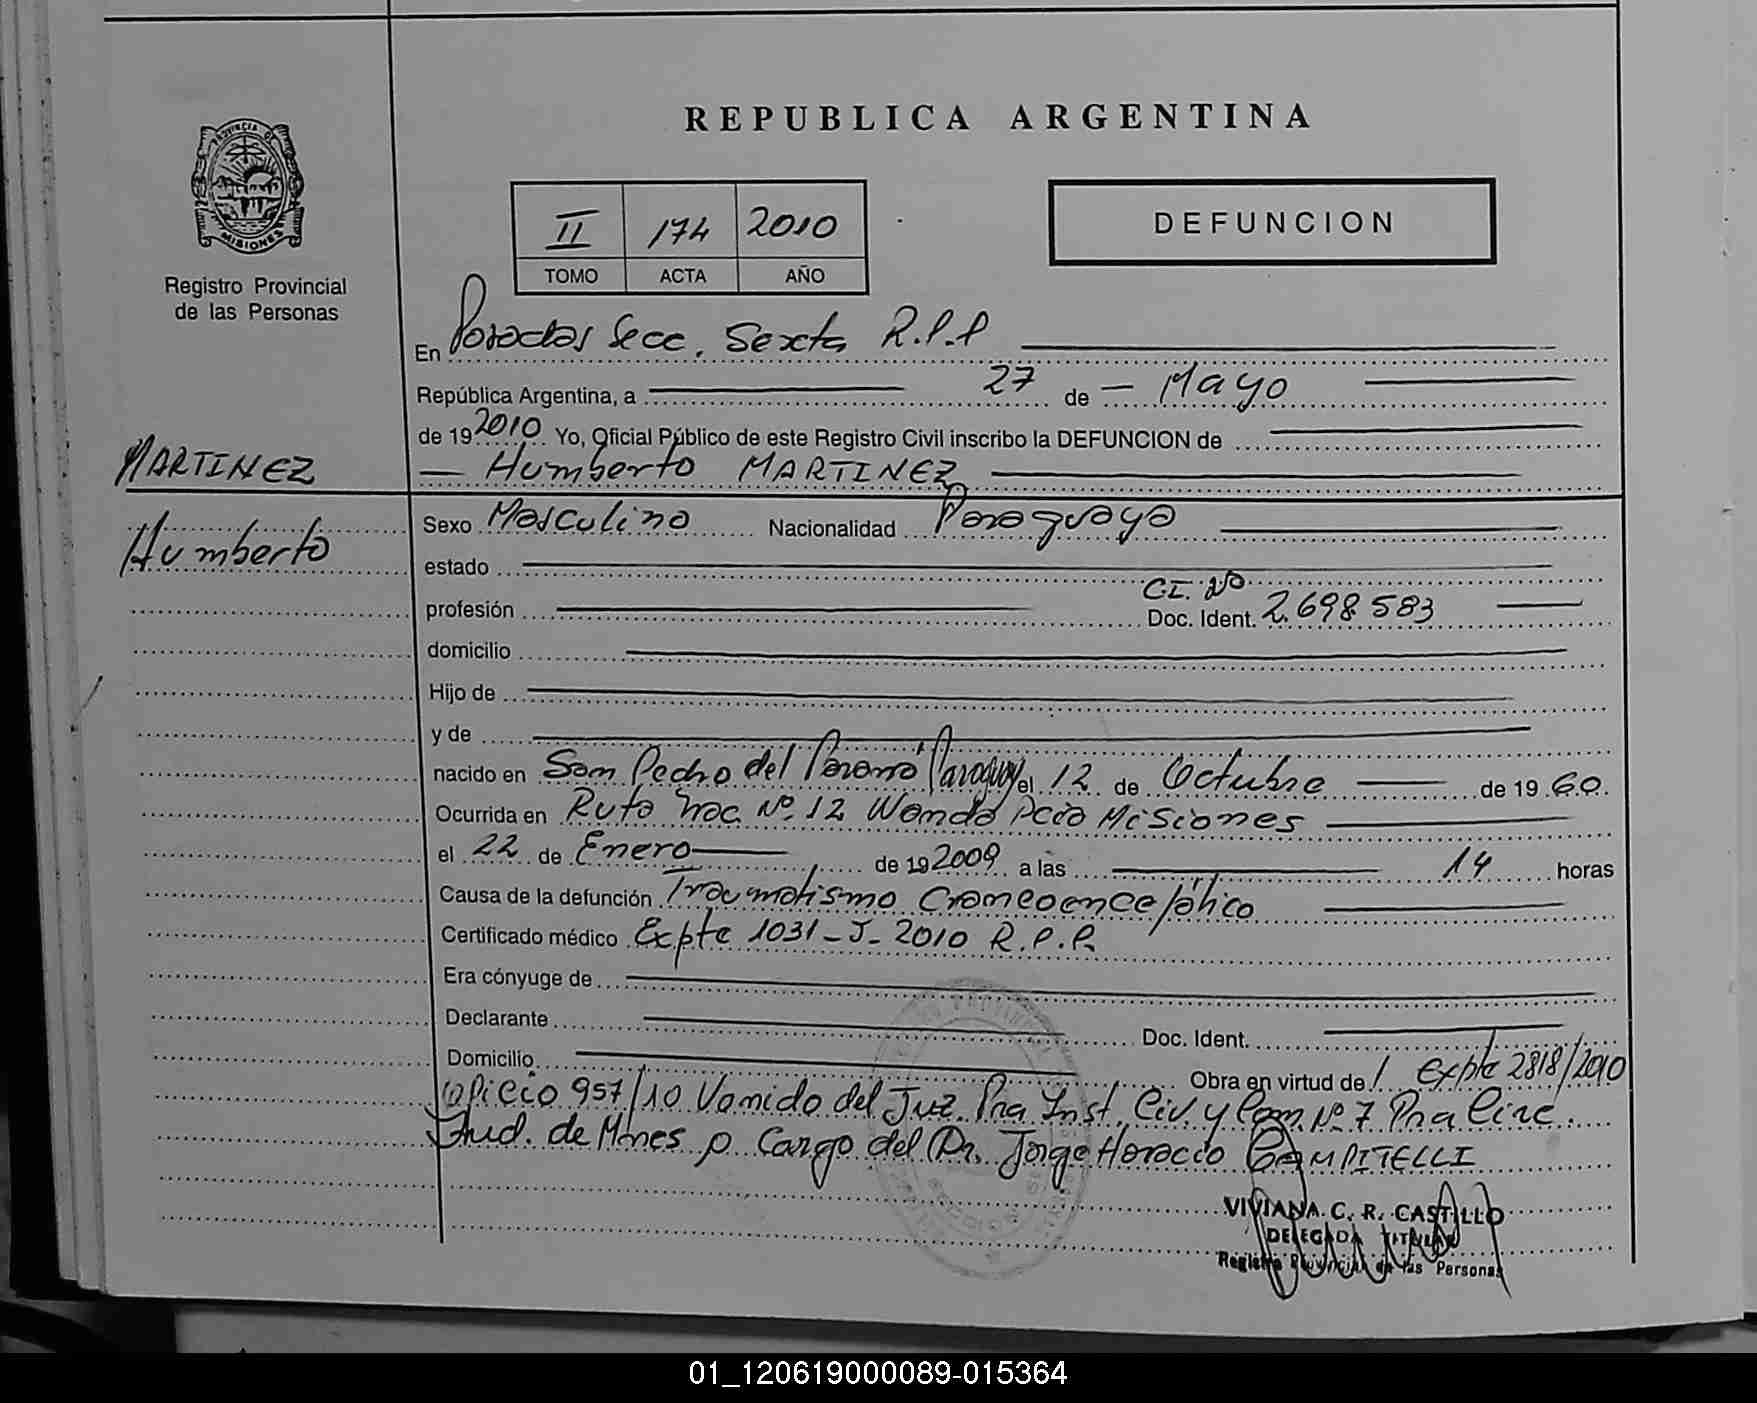 REPUBLICA ARGENTINA
PROVINCIA DE
MISIONES
Registro Provincial
de las Personas
II 174 2010
TOMO ACTA AÑO
DEFUNCION
En Posadas Secc. Sexta R.P.P
República Argentina, a 27 de Mayo
de 19 2010 Yo, Oficial Público de este Registro Civil inscribo la DEFUNCION de
Humberto MARTINEZ
MARTINEZ
Humberto
Sexo Masculino Nacionalidad Paraguaya
estado
C.I. Nº
profesión Doc. Ident. 2.698.583
domicilio
Hijo de
y de
nacido en San Pedro del Paraná Paraguay el 12 de Octubre de 19 60.
Ocurrida en Ruta Nac. Nº 12 Wanda Pcia Misiones
el 22 de Enero de 19 2009 a las 14 horas
Causa de la defunción Traumatismo Craneoencefálico
Certificado médico Expte 1031-J-2010 R.P.P.
Era cónyuge de
Declarante Doc. Ident.
Domicilio Obra en virtud de Expte 2818/2010
Oficio 957/10 Venido del Juz. Pra Inst. Civ. y Com Nº 7 Pra Circ.
Jud. de Mnes a Cargo del Dr. Jorge Horacio CAMPITELLI
VIVIANA C. R. CASTILLO
DELEGADA TITULAR
Registro Provincial de las Personas
01_120619000089-015364